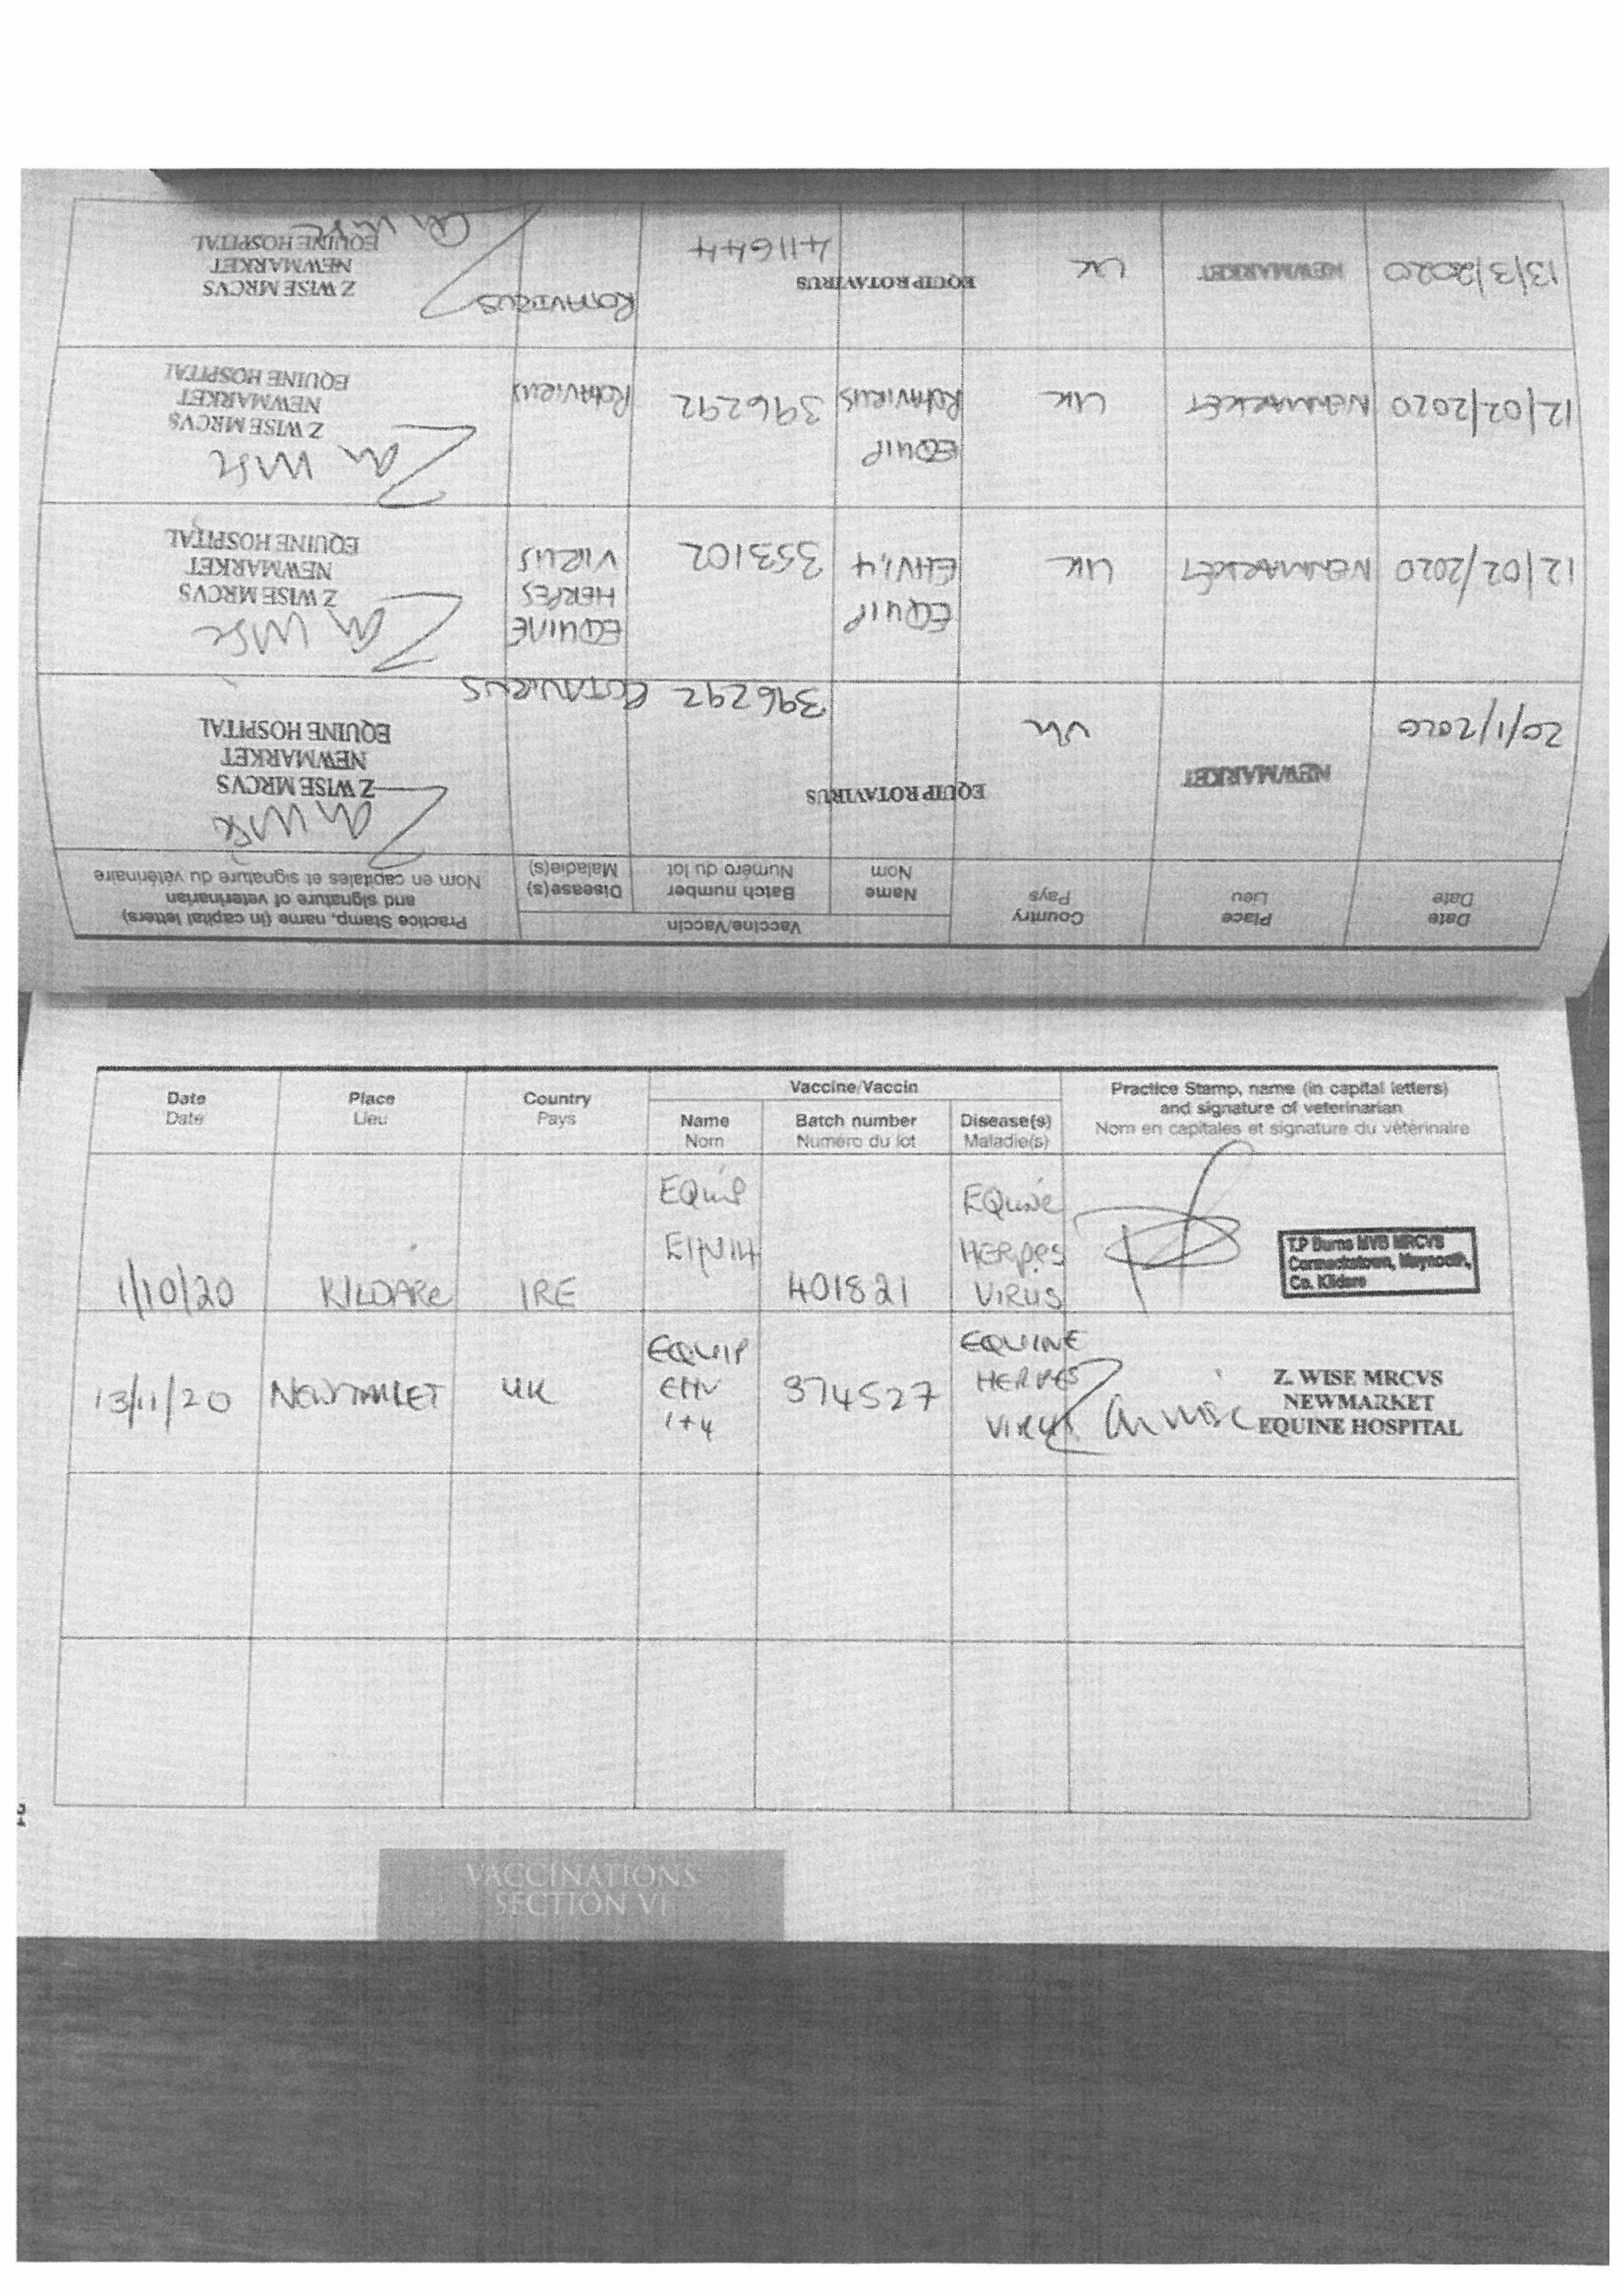 Date
Date
Place
Lieu
Country
Pays
Vaccine/Vaccin
Name
Nom
Batch number
Numéro du lot
Disease(s)
Maladie(s)
Practice Stamp, name (in capital letters)
and signature of veterinarian
Nom en capitales et signature du vétérinaire
20/1/2020
NEWMARKET
UK
EQUIP ROTAVIRUS
396292
ROTAVIRUS
Z WISE MRCVS
NEWMARKET
EQUINE HOSPITAL
12/02/2020
NEWMARKET
UK
EQUIP
EHV1,4
353102
EQUINE
HERPES
VIRUS
Z WISE MRCVS
NEWMARKET
EQUINE HOSPITAL
12/02/2020
NEWMARKET
UK
EQUIP
ROTAVIRUS
396292
ROTAVIRUS
Z WISE MRCVS
NEWMARKET
EQUINE HOSPITAL
13/3/2020
NEWMARKET
UK
EQUIP ROTAVIRUS
411644
ROTAVIRUS
Z WISE MRCVS
NEWMARKET
EQUINE HOSPITAL
Date
Date
Place
Lieu
Country
Pays
Vaccine/Vaccin
Name
Nom
Batch number
Numéro du lot
Disease(s)
Maladie(s)
Practice Stamp, name (in capital letters)
and signature of veterinarian
Nom en capitales et signature du vétérinaire
1/10/20
KILDARE
IRE
EQUIP
EHV14
401821
EQUINE
HERPES
VIRUS
T.P Burns MVB MRCVS
Cormackstown, Maynooth,
Co. Kildare
13/11/20
NEWMARKET
UK
EQUIP
EHV
1+4
374527
EQUINE
HERPES
VIRUS
Z. WISE MRCVS
NEWMARKET
EQUINE HOSPITAL
VACCINATIONS
SECTION VI